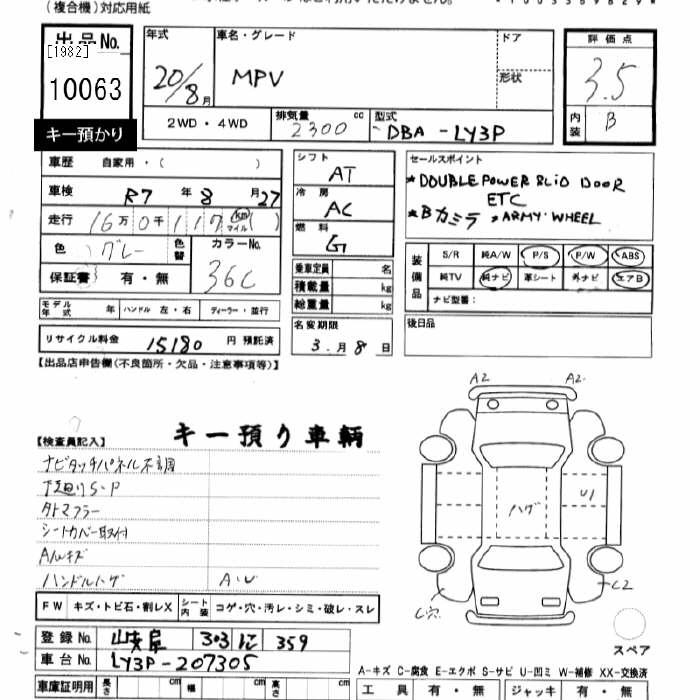 (複合機)対応用紙
出品No.
[1982]
10063
キー預かり
年式
20/8月
車名・グレード
MPV
ドア
形状
評価点
3.5
内装 B
2WD・4WD
排気量 2300 cc
型式 DBA-LY3P
車歴 自家用・( )
車検 R7年8月27
走行 16万0千117 km マイル ( )
色 グレー 色替
カラーNo. 36C
保証書 有・無
シフト AT
冷房 AC
燃料 G
乗車定員 名
積載量 kg
総重量 kg
セールスポイント
*DOUBLE POWER SLID DOOR
ETC
*Bカミラ *ARMY WHEEL
装備品
S/R 純A/W P/S P/W ABS
純TV 純ナビ 革シート 外ナビ エアB
ナビ型番:
モデル年式 年 ハンドル 左・右 ディーラー・並行
リサイクル料金 15180 円 預託済
名変期限
3.月8日
後日品
【出品店申告欄(不良箇所・欠品・注意事項等)】
キー預り車輌
【検査員記入】
ナビタッチパネル不調
下廻りS・P
タトマフラー
シートカバー取付
A/Wキズ
ハンドルハゲ A・U
A2 A2
ハゲ
U1
C穴
C2
スペア
FW キズ・トビ石・割レX シート内装 コゲ・穴・汚レ・シミ・破レ・スレ
登録No. 岐阜 303 に 359
車台No. LY3P-207305
A-キズ C-腐食 E-エクボ S-サビ U-凹ミ W-補修 XX-交換済
車庫証明用 長さ cm 幅 cm 高さ cm
工具 有・無 ジャッキ 有・無